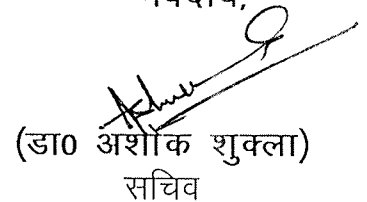 (डा0 अशोक शुक्ला)
सचिव